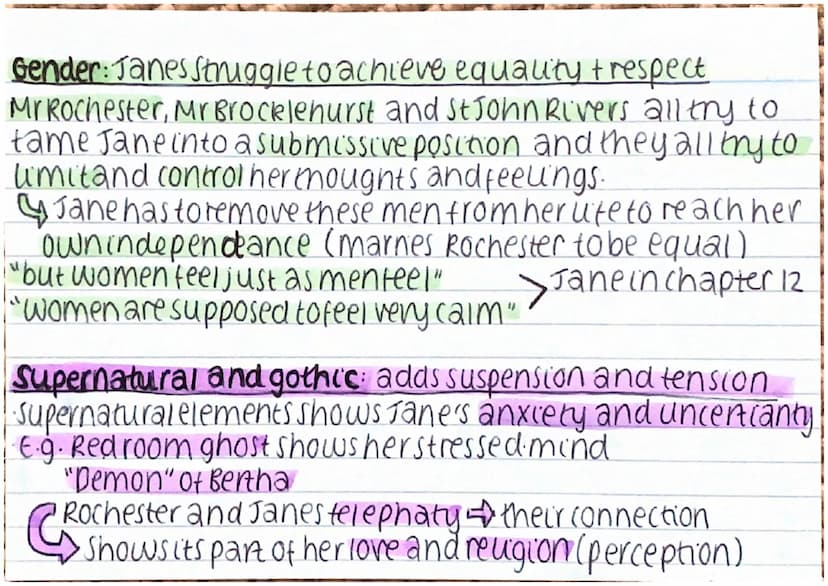 Gender: Janes struggle to achieve equality + respect
Mr Rochester, Mr Brocklehurst and St John Rivers all try to
tame Jane into a submissive position and they all try to
limit and control her thoughts and feelings.
↳ Jane has to remove these men from her life to reach her
own independance (marries Rochester to be equal)
"but women feel just as men feel" > Jane in chapter 12
"women are supposed to feel very calm"
Supernatural and gothic: adds suspension and tension
supernatural elements shows Jane's anxiety and uncertianty
E.g. Red room ghost shows her stressed mind
"Demon" of Bertha
Rochester and Janes telephaty ⇒ their connection
↳ shows its part of her love and religion (perception)